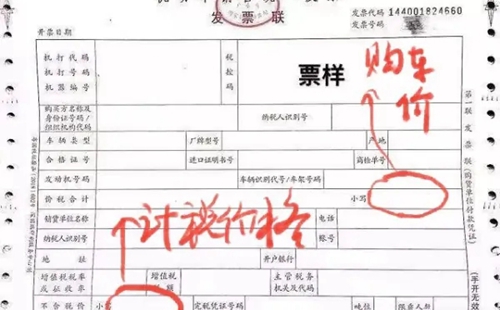 发票联
发票代码 144001824660
发票号码
开票日期
机打代码
机打号码
机器编号
税控码
票样
购车价
购买方名称及
身份证号码/
组织机构代码
纳税人识别号
车辆类型
厂牌型号
产地
合格证号
进口证明书号
商检单号
发动机号码
车辆识别代号/车架号码
价税合计
小写
计税价格
销货单位名称
电话
纳税人识别号
账号
开户银行
增值税税率
或征收率
增值税
税额
主管税务
机关及代码
不含税价
小写
完税凭证号码
吨位
限乘人数
第一联 发票联 (购货单位付款凭证)
(手开无效)